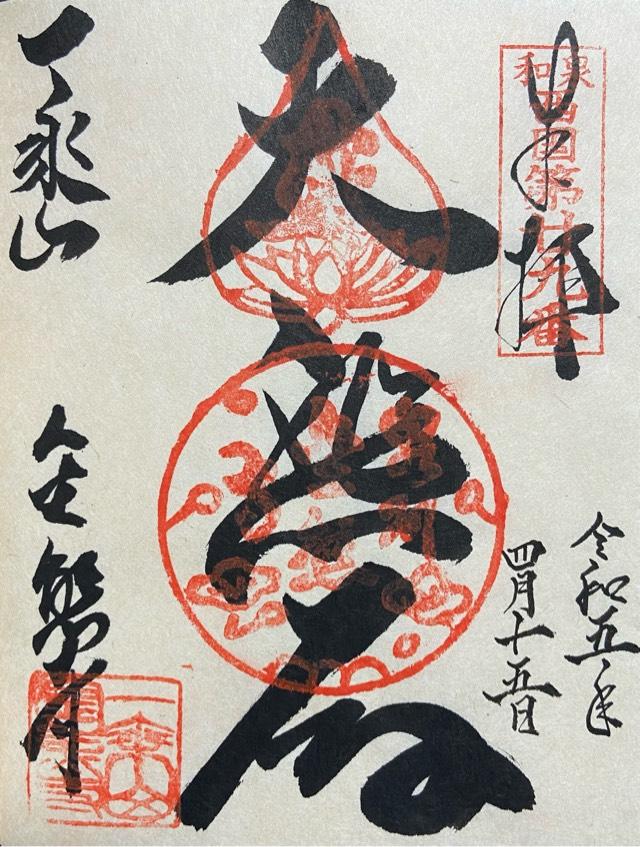 奉拝
和泉
西国第廿九番
令和五年
四月十五日
大悲閣
一乗山
金熊寺